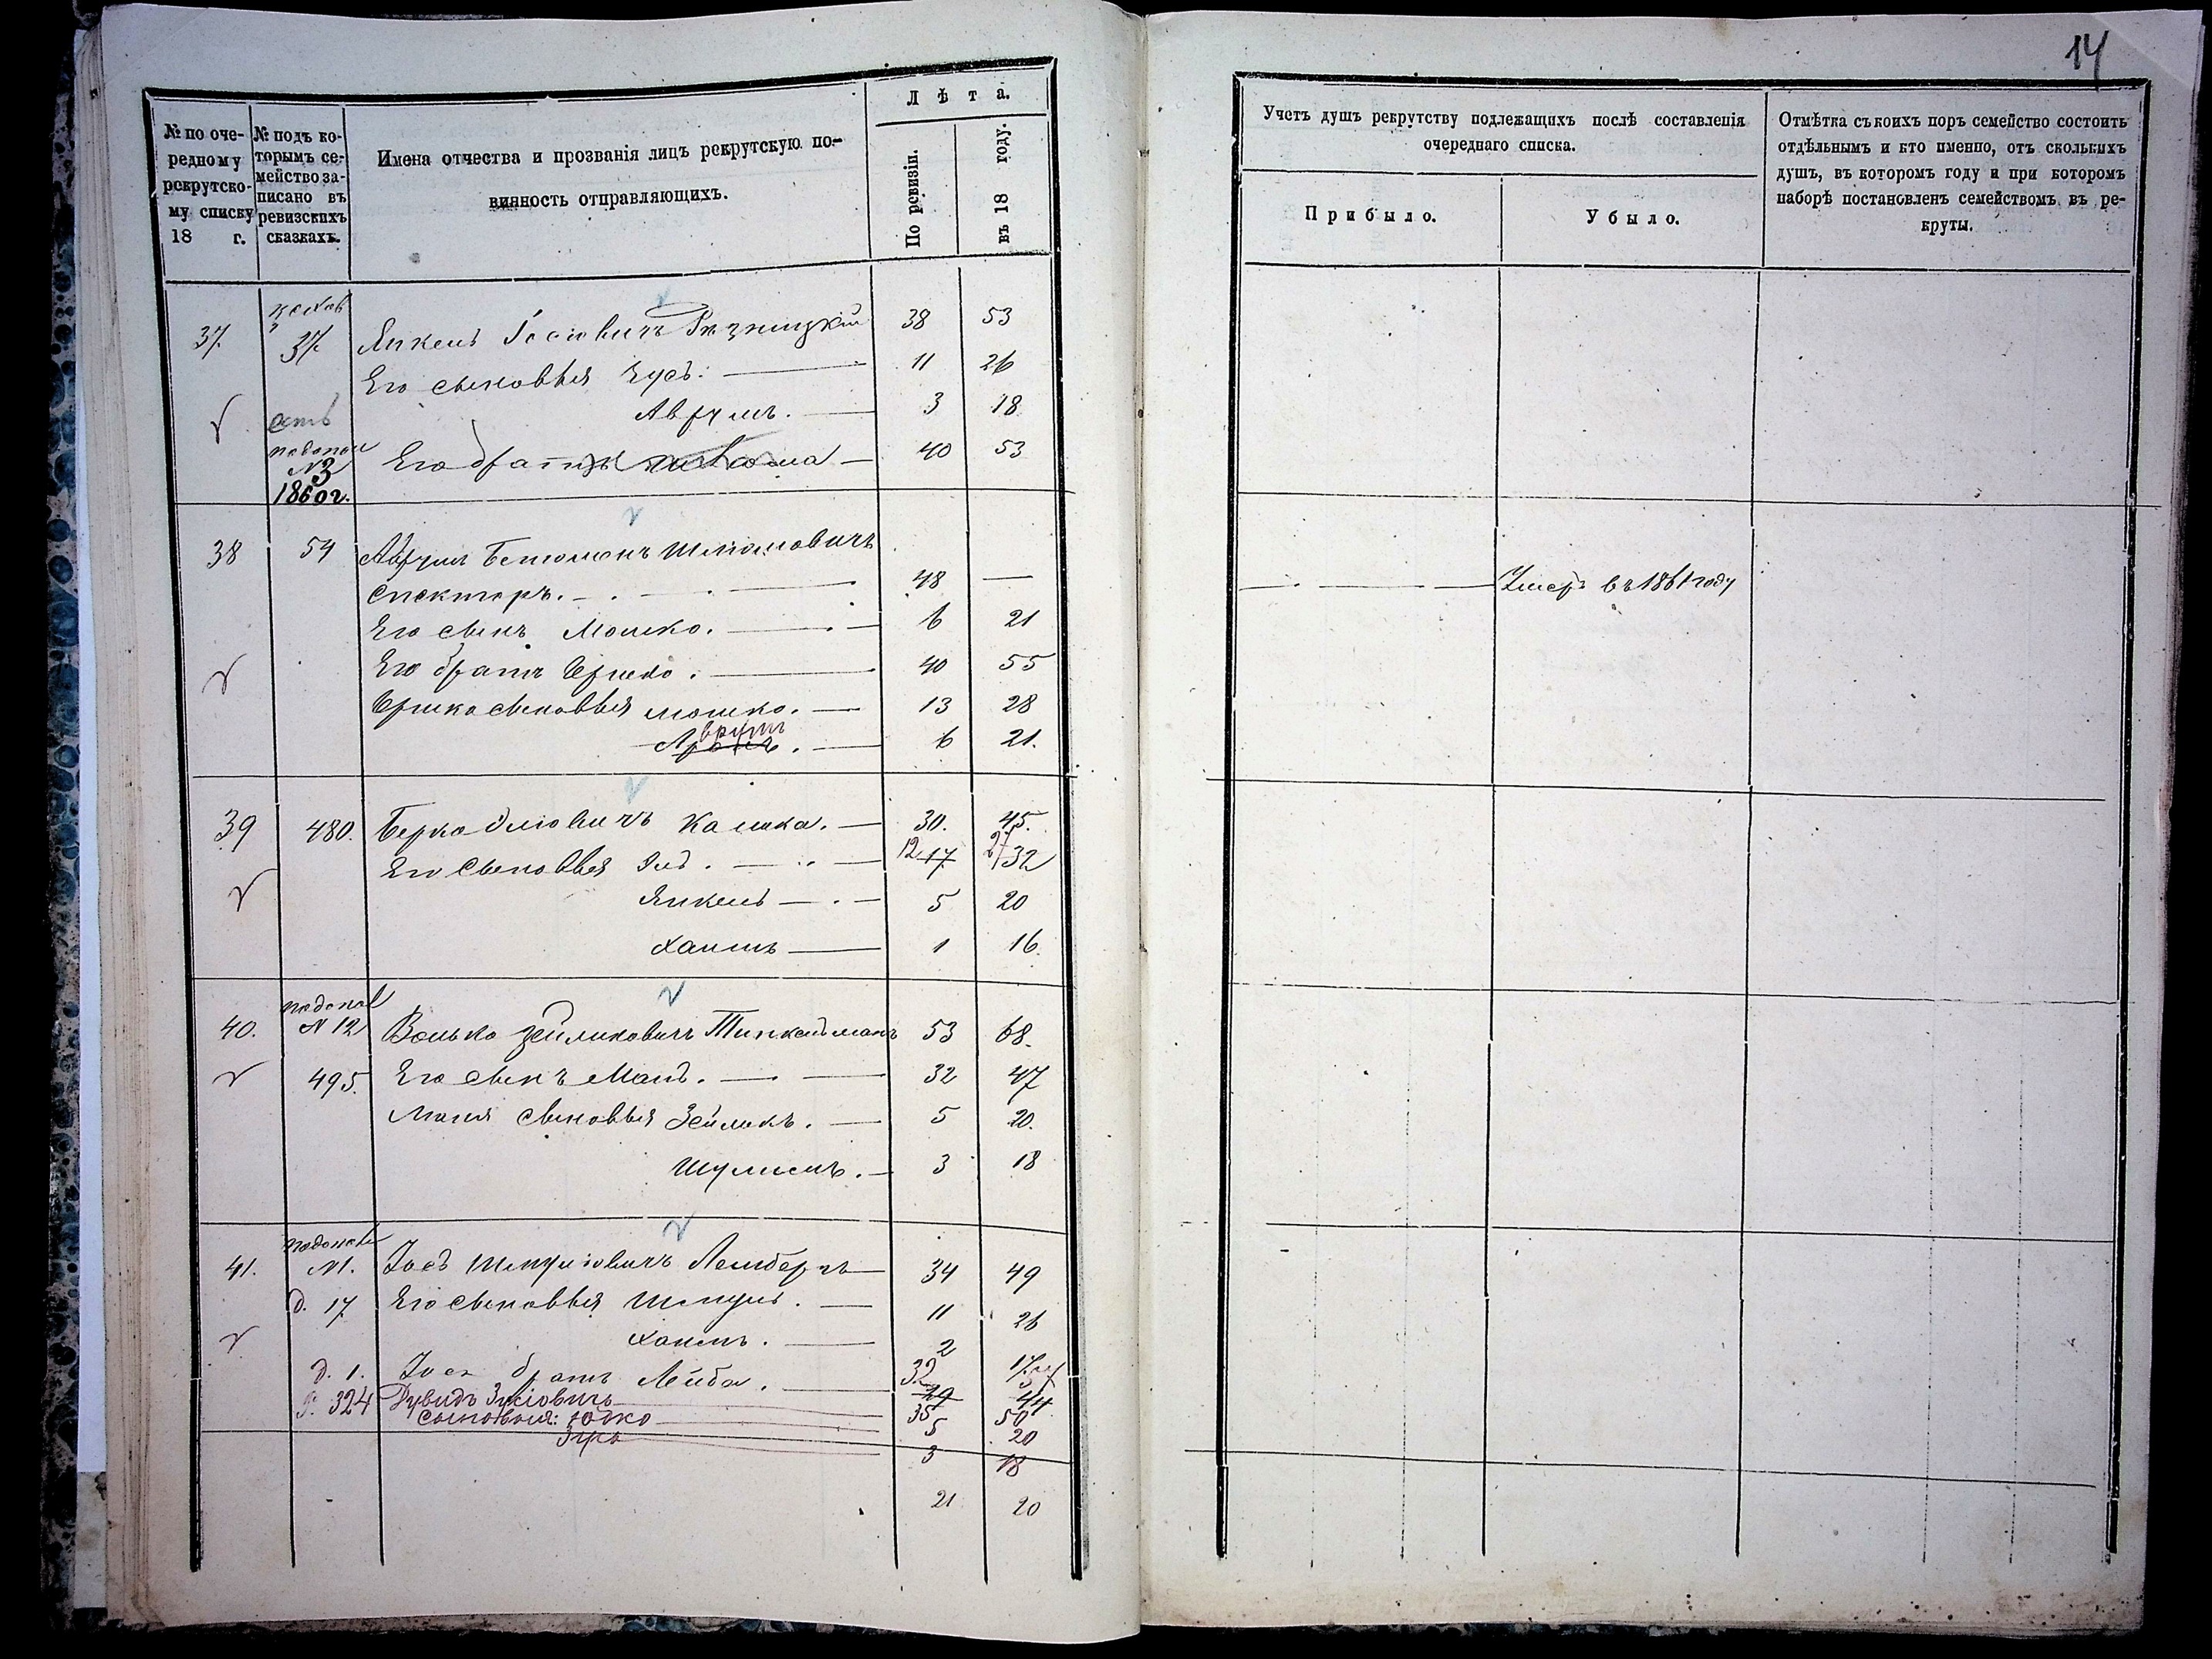 14
№ по оче-
редному
рекрутско-
му списку
18 г.
№ подъ ко-
торымъ се-
мейство за-
писано въ
ревизскихъ
сказкахъ.
Имена отчества и прозванія лицъ рекрутскую по-
винность отправляющихъ.
Лѣта.
По ревизіи.
въ 18 году.
Учетъ душъ рекрутству подлежащихъ послѣ составленія
очереднаго списка.
Прибыло.
Убыло.
Отмѣтка съ коихъ поръ семейство состоитъ
отдѣльнымъ и кто именно, отъ сколькихъ
душъ, въ которомъ году и при которомъ
наборѣ постановленъ семействомъ въ ре-
круты.
37. 37. Янкель Іосіовичъ Рѣзницкій 38 53
Его сыновья Зусь: 11 26
Аврумъ. 3 18
Его братъ 40 53
№ 3
1860 г.
38 54 Аврумъ Беньоменъ Шліомовичъ
Спекторъ. 48 — Умеръ въ 1861 году
Его сынъ Мошко. 6 21
Его братъ Ершко. 40 55
Ершка сыновья Мошко. 13 28
врумъ
6 21.
39 480. Берко Эліовичъ Калика. 30. 45.
Его сыновья Эль. 12 17 27 32
Янкель 5 20
Хаимъ 1 16.
40. № 12 Волько Зейликовичъ Тинкельманъ 53 68.
495. Его сынъ Мань. 32 47
Маня сыновья Зейликъ. 5 20.
Шулимъ. 3 18
41. №1. Іось Шмуліовичъ Лембергъ 34 49
д. 17 Его сыновья Шмуль. 11 26
Хаимъ. 2 17
д. 1. Іося братъ Лейба. 32 29 44
324 Дувидъ Зусіовичъ 35 50
Сыновья: Юдко 5 20
3 18
21 20